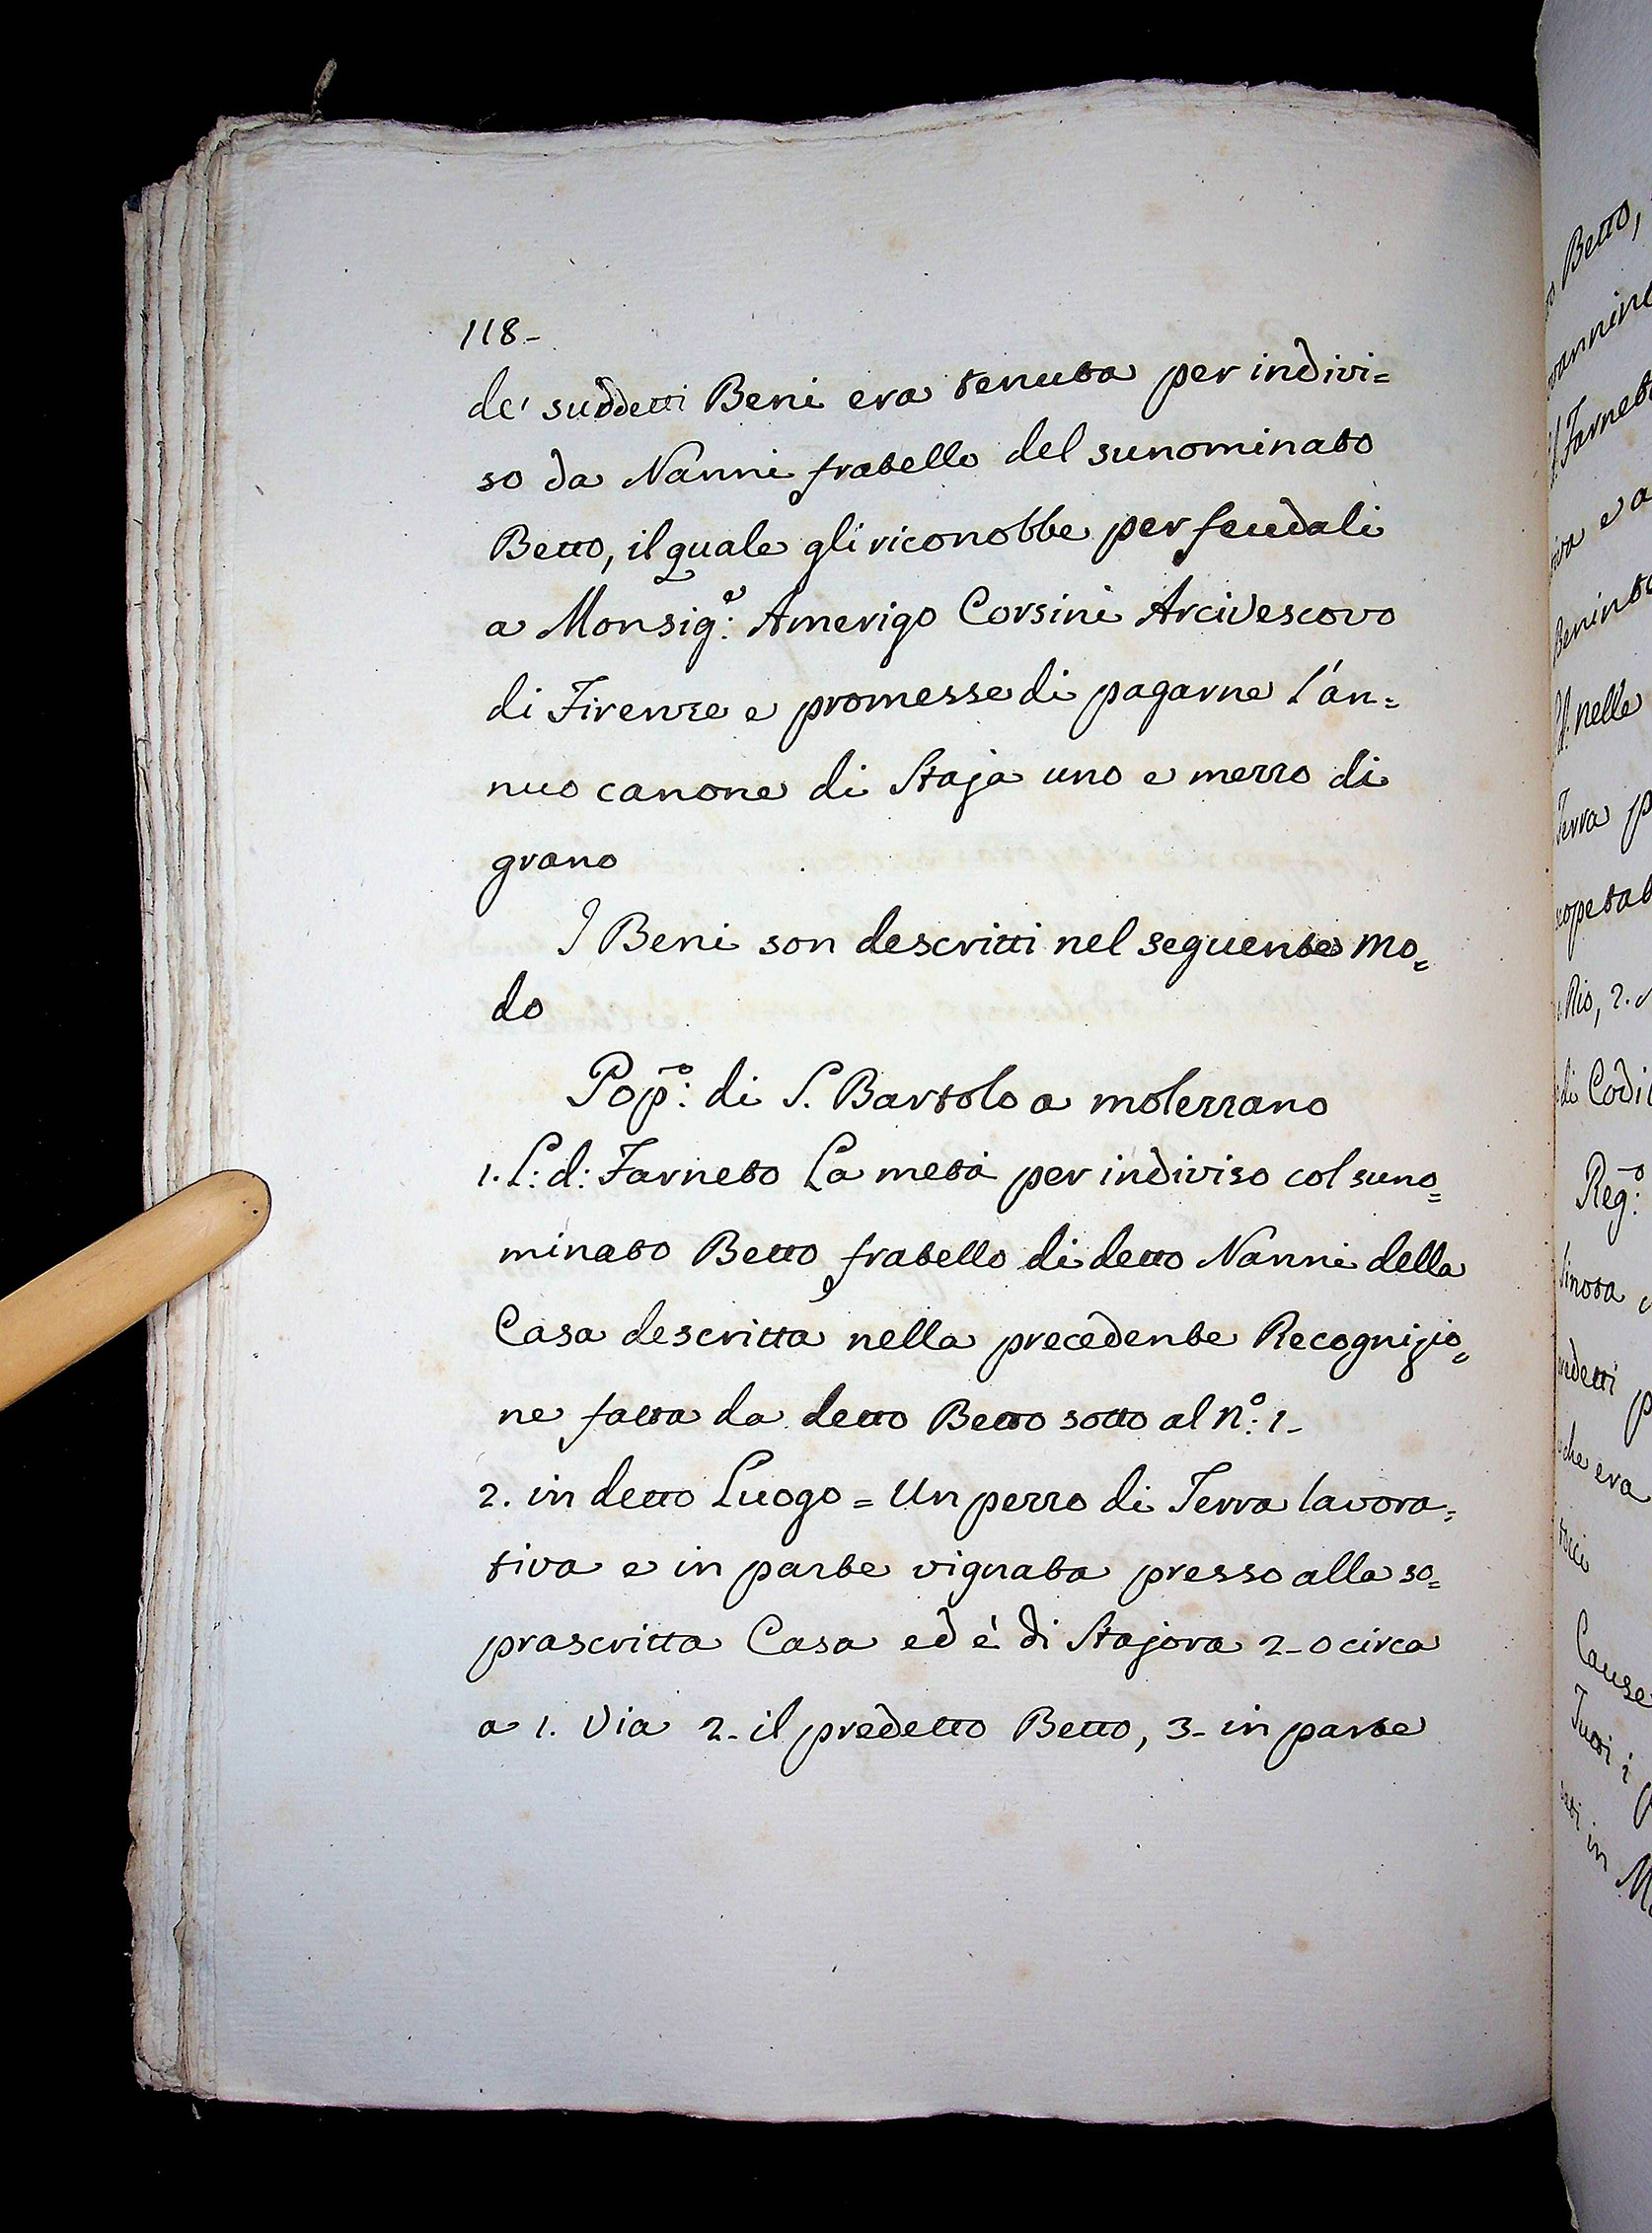 118-
de' suddetti Beni era tenuta per indivi=
so da Nanni fratello del sunominato
Betto, il quale gli riconobbe per feudali
a Monsig:e Amerigo Corsini Arcivescovo
di Firenze e promesse di pagarne l'an=
nuo canone di Staja uno e mezzo di
grano
I Beni son descritti nel seguente mo=
do
Pop:o di S. Bartolo a molezzano
1. L: d: Farneto La metà per indiviso col suno=
minato Betto fratello di detto Nanni della
Casa descritta nella precedente Recognizio=
ne fatta da detto Betto sotto al N.o: 1-
2. in detto Luogo = Un pezzo di Terra lavora=
tiva e in parte vignata presso alla so=
prascritta Casa ed è di Stajora 2-0 circa
a 1. Via 2- il predetto Betto, 3- in parte
Betto,
Farneto
e a
nelle
Terra
Rio, 2.
di
Reg:o
che era
Cause
Tutti i
in